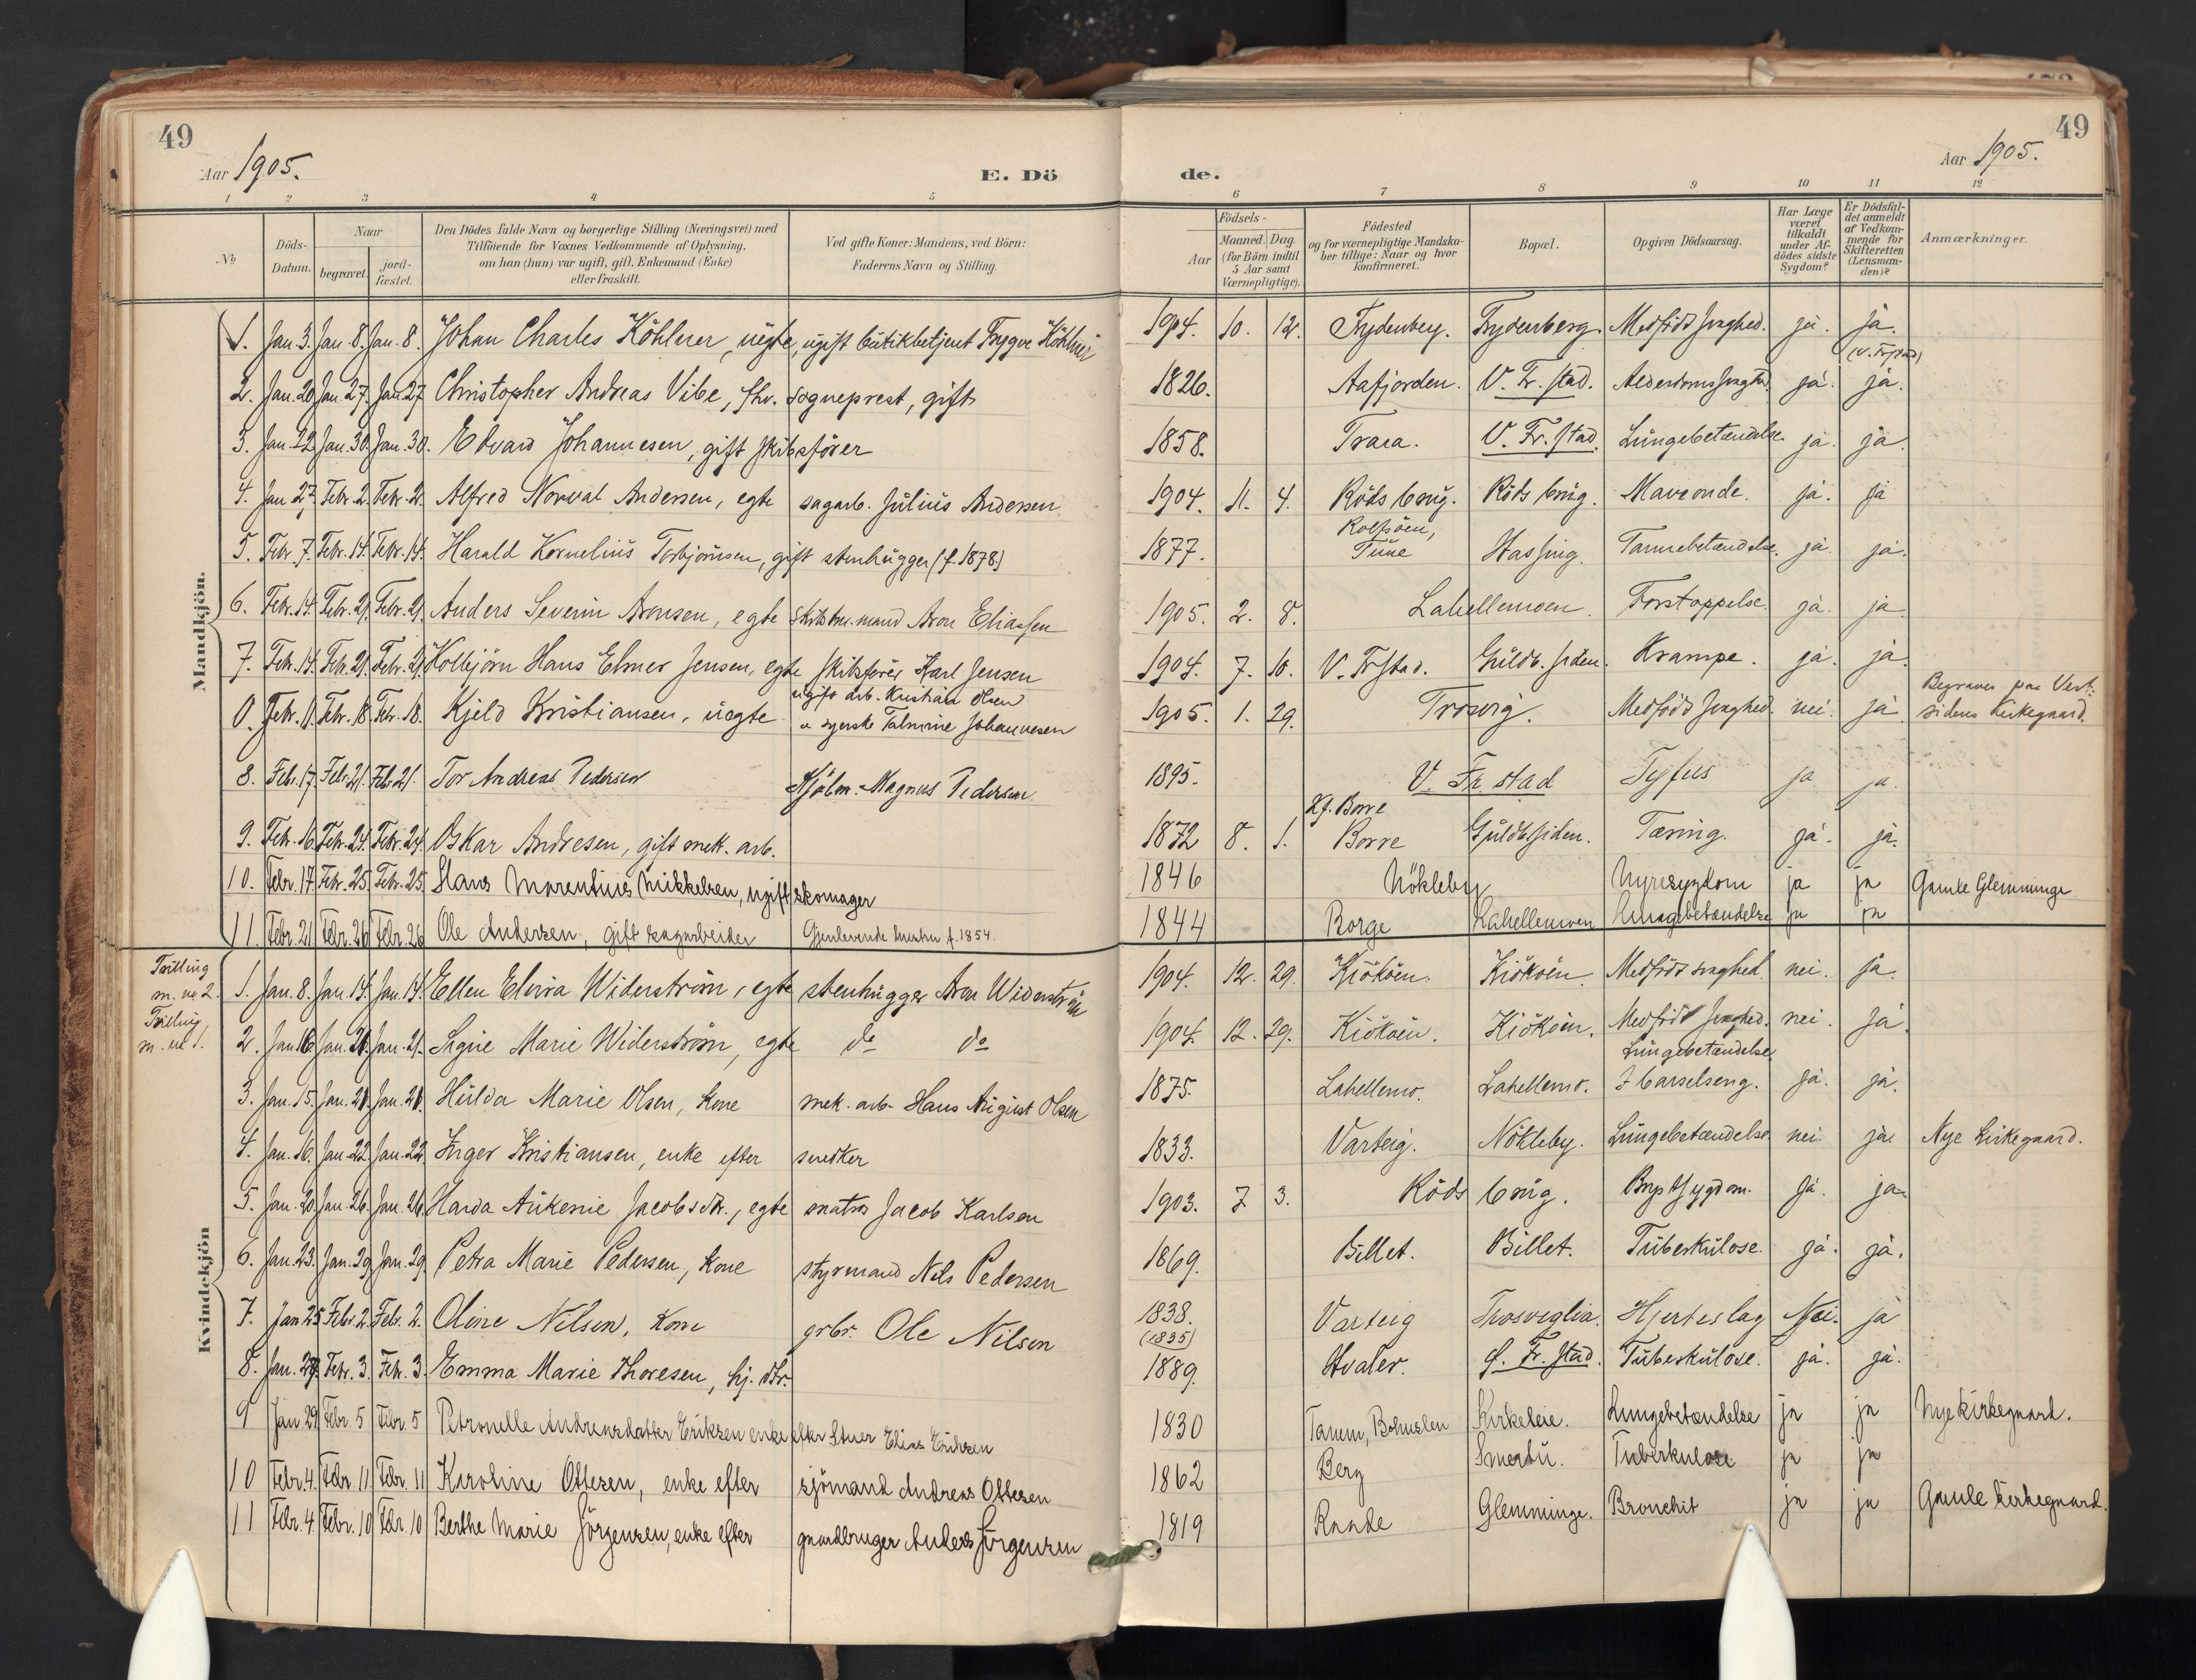 49
Aar 1905.
E. Dö
de.
Aar 1905.
49
1 2 3 4 5 6 7 8 9 10 11 12
No
Döds-Datum.
Naar
begravet.
jord-fæstet.
Den Dödes fulde Navn og borgerlige Stilling (Næringsvei) med
Tilföiende for Voxnes Vedkommende af Oplysning,
om han (hun) var ugift, gift, Enkemand (Enke)
eller fraskilt.
Ved gifte Koner: Mandens, ved Börn:
Faderens Navn og Stilling.
Födsels-
Aar
Maaned. Dag.
(for Börn indtil
5 Aar samt
Værnepligtige).
Födested
og for værnepligtige Mandska-
ber tillige: Naar og hvor
konfirmeret.
Bopæl.
Opgiven Dödsaarsag.
Har Læge
været
tilkaldt
under Af-
dödes sidste
Sygdom?
Er Dödsfal-
det anmeldt
af Vedkom-
mende for
Skifteretten
(Lensman-
den)?
Anmærkninger.
Mandkjön.
1. Jan. 3. Jan. 8. Jan. 8. Johan Charles Köhlner, uegte, ugift butikbetjent Trygve Köhlner 1904. 10. 12. Trydenberg. Trydenberg. Medfödt svaghed. ja. ja.
(V. Frstad)
2. Jan. 20. Jan. 27. Jan. 27 Christopher Andreas Vibe, fhv. sogneprest, gift 1826. Aafjorden. V. Fr.stad. Alderdomssvaghed. ja. ja.
3. Jan. 22. Jan. 30. Jan. 30. Edvard Johannesen, gift skibsförer 1858. Trara. V. Fr.stad. Lungebetændelse. ja. ja.
4. Jan. 27. Febr. 2. Febr. 2. Alfred Norval Andersen, egte sagarb. Julius Andersen 1904. 11. 4. Röds brug. Röds brug. Maveonde. ja. ja
5. Febr. 7. Febr. 14. Febr. 14. Harald Kornelius Torbjörnsen, gift stenhugger (f. 1878) 1877. Rolfsöen, Tune Hassing. Tarmebetændelse. ja. ja.
6. Febr. 14. Febr. 21. Febr. 21. Anders Severin Aronsen, egte skibstm.mand Aron Eliassen 1905. 2. 8. Lahellemoen. Forstoppelse. ja. ja.
7. Febr. 14. Febr. 21. Febr. 21. Kolbjörn Hans Elmer Jensen, egte skibsförer Karl Jensen 1904. 7. 10. V. Frstad. Guldb.siden. Krampe. ja. ja.
0. Febr. 11. Febr. 18. Febr. 18. Kjeld Kristiansen, uegte ugift arb. Kristian Olsen
u syerske Talmine Johannesen 1905. 1. 29. Trosvig. Medfödt svaghed. nei. ja. Begraves paa Vest-
sidens Kirkegaard.
8. Febr. 17. Febr. 21. Feb. 21. Tor Andreas Pedersen Hjalm. Magnus Pedersen 1895. V. Fr.stad Tyfus ja ja
9. Febr. 16. Febr. 24. Febr. 24. Oskar Andresen, gift mek. arb. 1872 8. 1. Kf. Borre
Borre Guldb.siden. Tæring. ja. ja.
10. Febr. 17. Febr. 25. Febr. 25. Hans Marentius Mikkelsen, ugift skomager 1846 Nökleby Nyresygdom ja ja Gamle Glemminge
11. Febr. 21 Febr. 26 Febr. 26 Ole Andersen, gift sagarbeider Gjenlevende hustru f. 1854. 1844 Borge Lahellemoen Lungebetændelse ja ja
Kvindekjön
Tvilling
m. no 2.
1. Jan. 8. Jan. 14. Jan. 14. Ellen Elvira Widerström, egte stenhugger Aron Widerström 1904. 12. 29. Kiököen. Kiököen. Medfödt svaghed. nei. ja.
Tvilling,
m. no 1.
2. Jan. 16. Jan. 21. Jan. 21. Signe Marie Widerström, egte do do 1904. 12. 29. Kiököen. Kiököen. Medfödt svaghed. nei. ja.
3. Jan. 15. Jan. 21. Jan. 21. Hulda Marie Olsen, kone mek. arb. Hans August Olsen 1875. Lahellemo. Lahellemo. Lungebetændelse
I barselseng. ja. ja.
4. Jan. 16. Jan. 22. Jan. 22. Inger Kristiansen, enke efter snedker 1833. Varteig. Nökleby. Lungebetændelse nei. ja. Nye kirkegaard.
5. Jan. 20. Jan. 26. Jan. 26. Harda Aukenie Jacobsdtr., egte matros Jacob Karlsen 1903. 7 3. Röds brug. Brystsygdom. ja. ja.
6. Jan. 23. Jan. 29. Jan. 29. Petra Marie Pedersen, kone styrmand Nils Pedersen 1869. Billet. Billet. Tuberkulose. ja. ja.
7. Jan. 25 Febr. 2. Febr. 2. Oline Nilsen, kone grbr. Ole Nilsen 1838.
(1835) Varteig Trosviglia. Hjerteslag Nei. ja
8. Jan. 27. Febr. 3. Febr. 3. Emma Marie Thoresen, hj. dtr. 1889. Hvaler. G. Fr.stad. Tuberkulose. ja. ja.
9 Jan. 29. Febr. 5 Febr. 5 Petronelle Andreasdatter Eriksen enke efter Elias Eriksen 1830 Tanum, Bohuslen Kirkeleie. Lungebetændelse ja ja Nye kirkegaard.
10 Febr. 4. Febr. 11. Febr. 11 Karoline Ottesen, enke efter sjömand Andreas Ottesen 1862 Berg Smertu. Tuberkulose ja ja
11 Febr. 4. Febr. 10 Febr. 10 Berthe Marie Jörgensen, enke efter gaardbruger Anders Jörgensen 1819 Raade Glemminge. Bronchit ja ja Gamle kirkegaard.